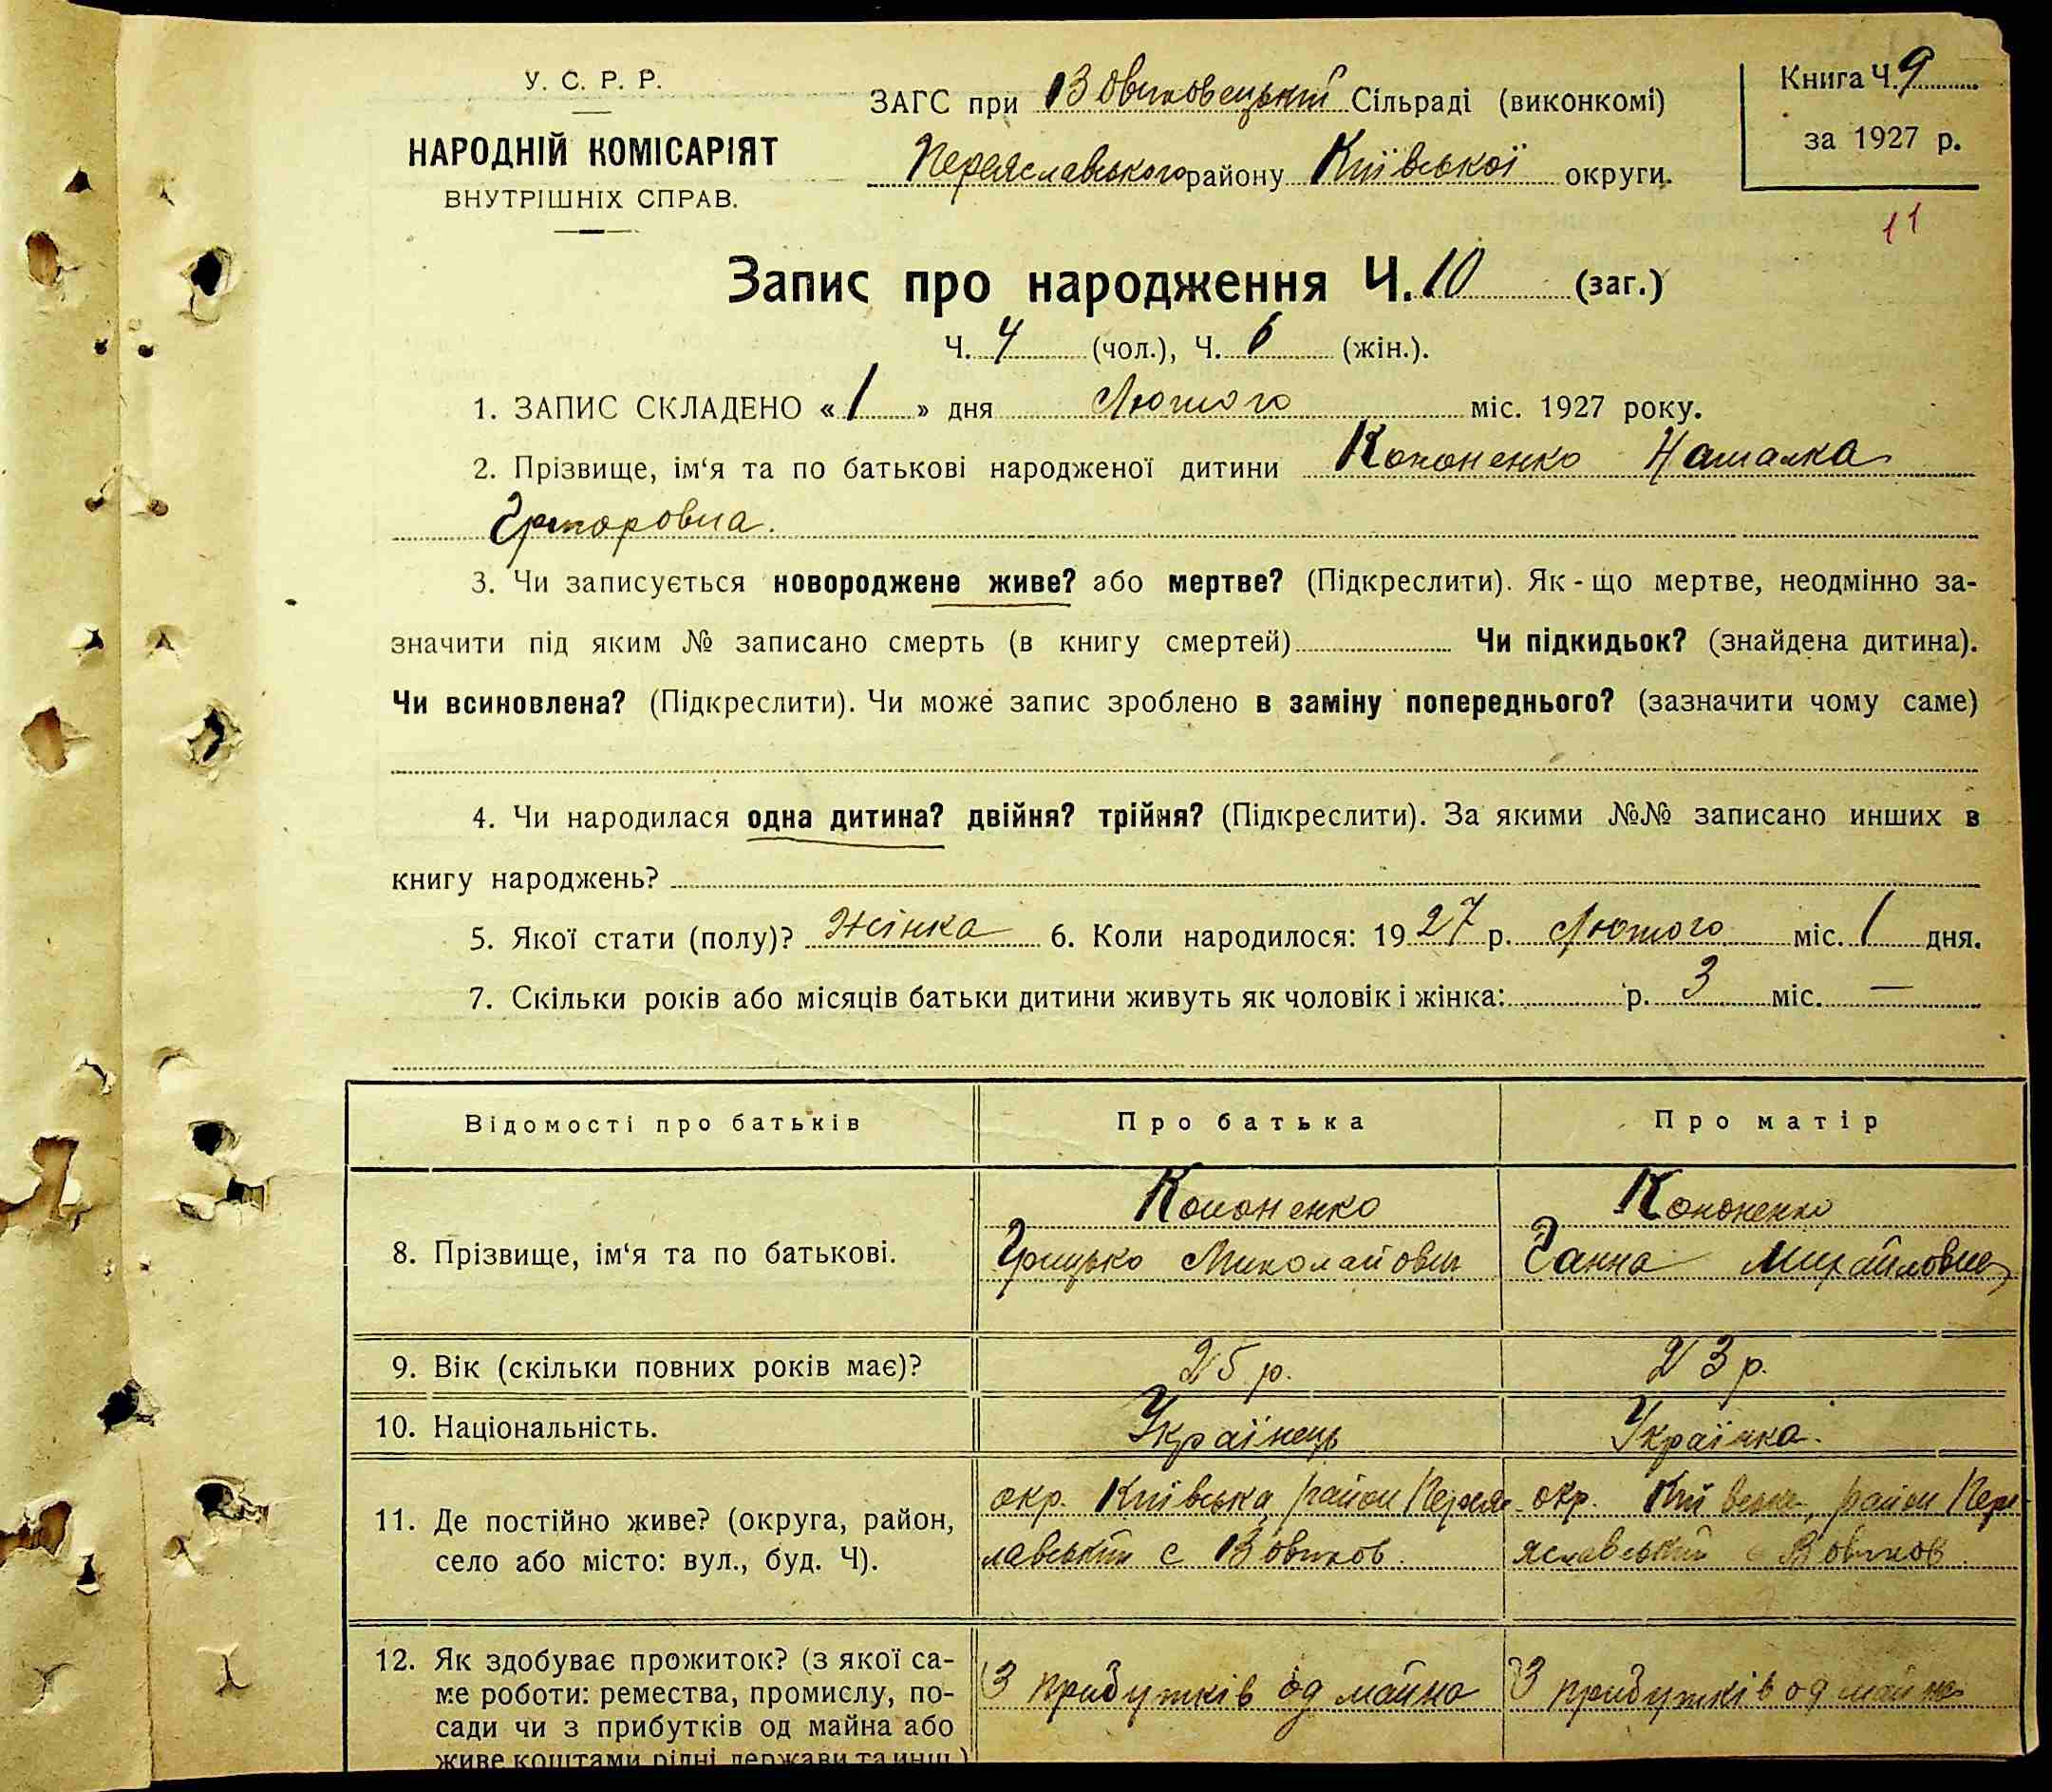 У. С. Р. Р.
НАРОДНІЙ КОМІСАРІЯТ
ВНУТРІШНІХ СПРАВ.
ЗАГС при Вовчковецький Сільраді (виконкомі)
Переяславського району Київської округи.
Книга Ч. 9
за 1927 р.
11
Запис про народження Ч. 10 (заг.)
Ч. 4 (чол.), Ч. 6 (жін.).
1. ЗАПИС СКЛАДЕНО « 1 » дня Лютого міс. 1927 року.
2. Прізвище, ім‘я та по батькові народженої дитини Кононенко Наталка
3. Чи записується новороджене живе? або мертве? (Підкреслити). Як - що мертве, неодмінно за-
значити під яким № записано смерть (в книгу смертей) Чи підкидьок? (знайдена дитина).
Чи всиновлена? (Підкреслити). Чи може запис зроблено в заміну попереднього? (зазначити чому саме)
4. Чи народилася одна дитина? двійня? трійня? (Підкреслити). За якими №№ записано инших в
книгу народжень?
5. Якої стати (полу)? Жінка 6. Коли народилося: 1927 р. Лютого міс. 1 дня.
7. Скільки років або місяців батьки дитини живуть як чоловік і жінка: р. 3 міс. —
Відомості про батьків Про батька Про матір
Кононенко Кононенко
8. Прізвище, ім‘я та по батькові. Грицько Миколайович Ганна Михайловна
9. Вік (скільки повних років має)? 25 р. 23 р.
10. Національність. Українець Українка.
11. Де постійно живе? (округа, район, окр. Київська, район Переяс окр. Київська, район Пере-
село або місто: вул., буд. Ч). лавський с Вовчков. яславський с Вовчков.
12. Як здобуває прожиток? (з якої са-
ме роботи: ремества, промислу, по- З прибутків од майна З прибутків од майна
сади чи з прибутків од майна або
живе коштами рідні, держави та инш.)